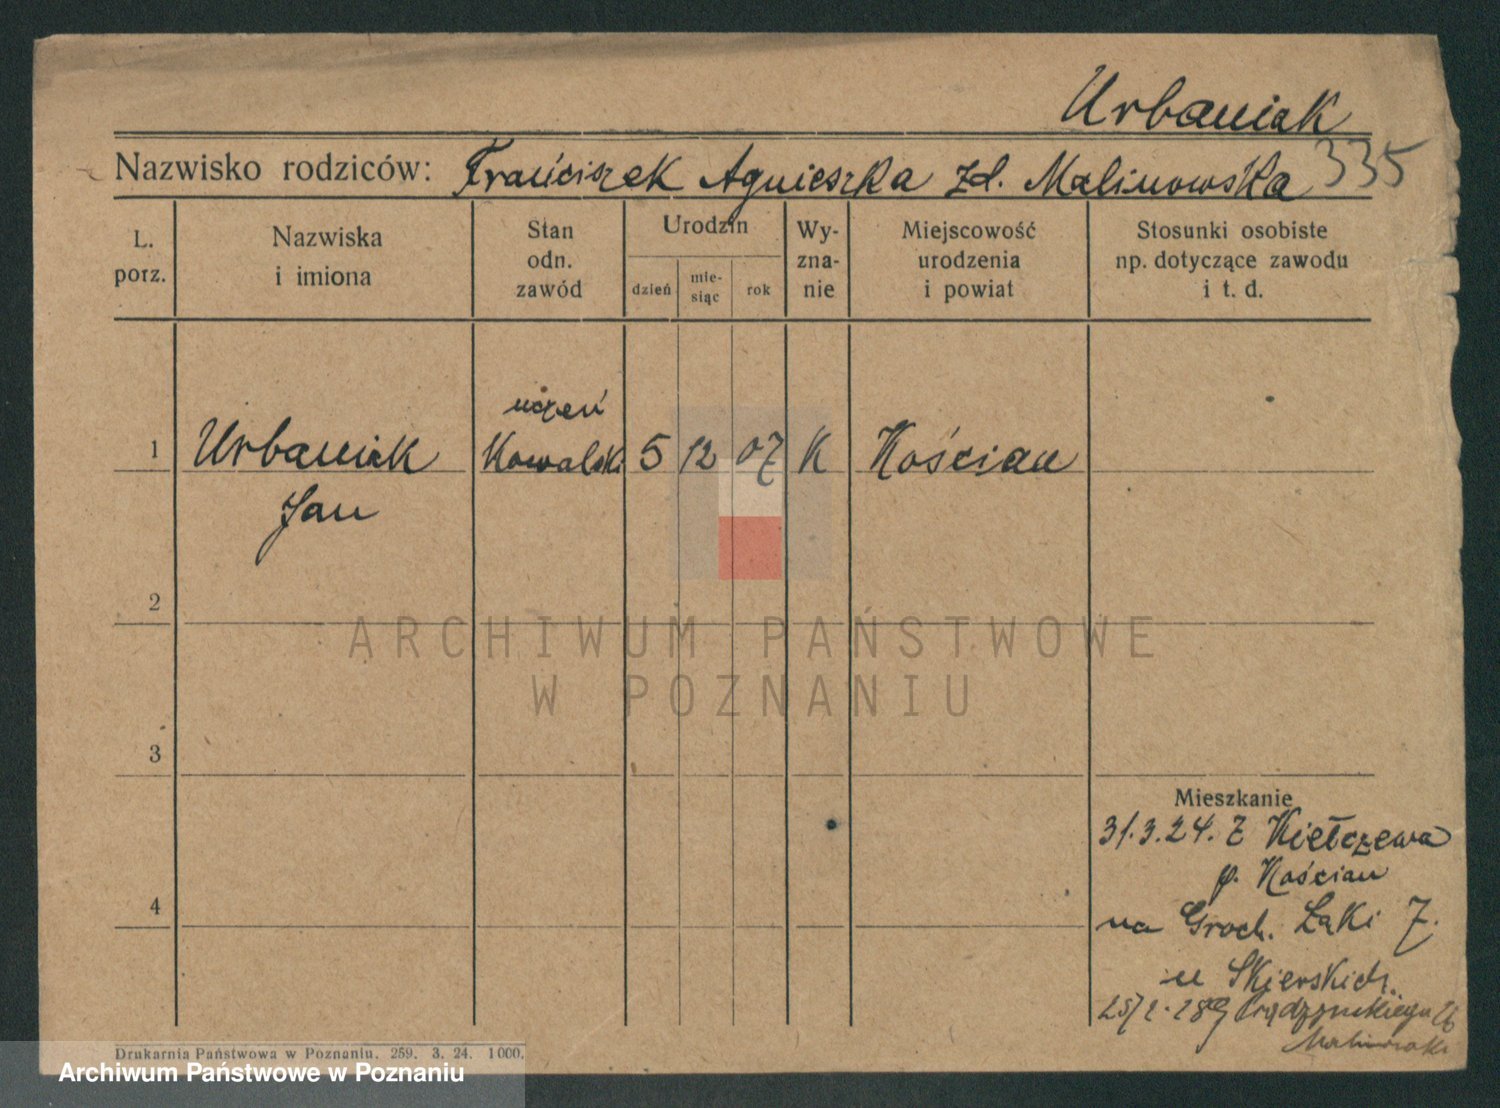 Urbaniak
Nazwisko rodziców: Franciszek Agnieszka zd. Malinowska 335
L. porz.
Nazwiska i imiona
Stan odn. zawód
Urodzin
dzień
mie-siąc
rok
Wy-zna-nie
Miejscowość urodzenia i powiat
Stosunki osobiste np. dotyczące zawodu i t. d.
uczeń
1 Urbaniak Kowalski 5 12 07 K Kościan
Jan
2
ARCHIWUM PAŃSTWOWE
W POZNANIU
3
Mieszkanie
31.3.24. z Kiełczewa
p. Kościan
4
na Groch. Łąki 7.
u Skierskich.
Malinowski
Drukarnia Państwowa w Poznaniu. 259. 3. 24. 1000.
Archiwum Państwowe w Poznaniu